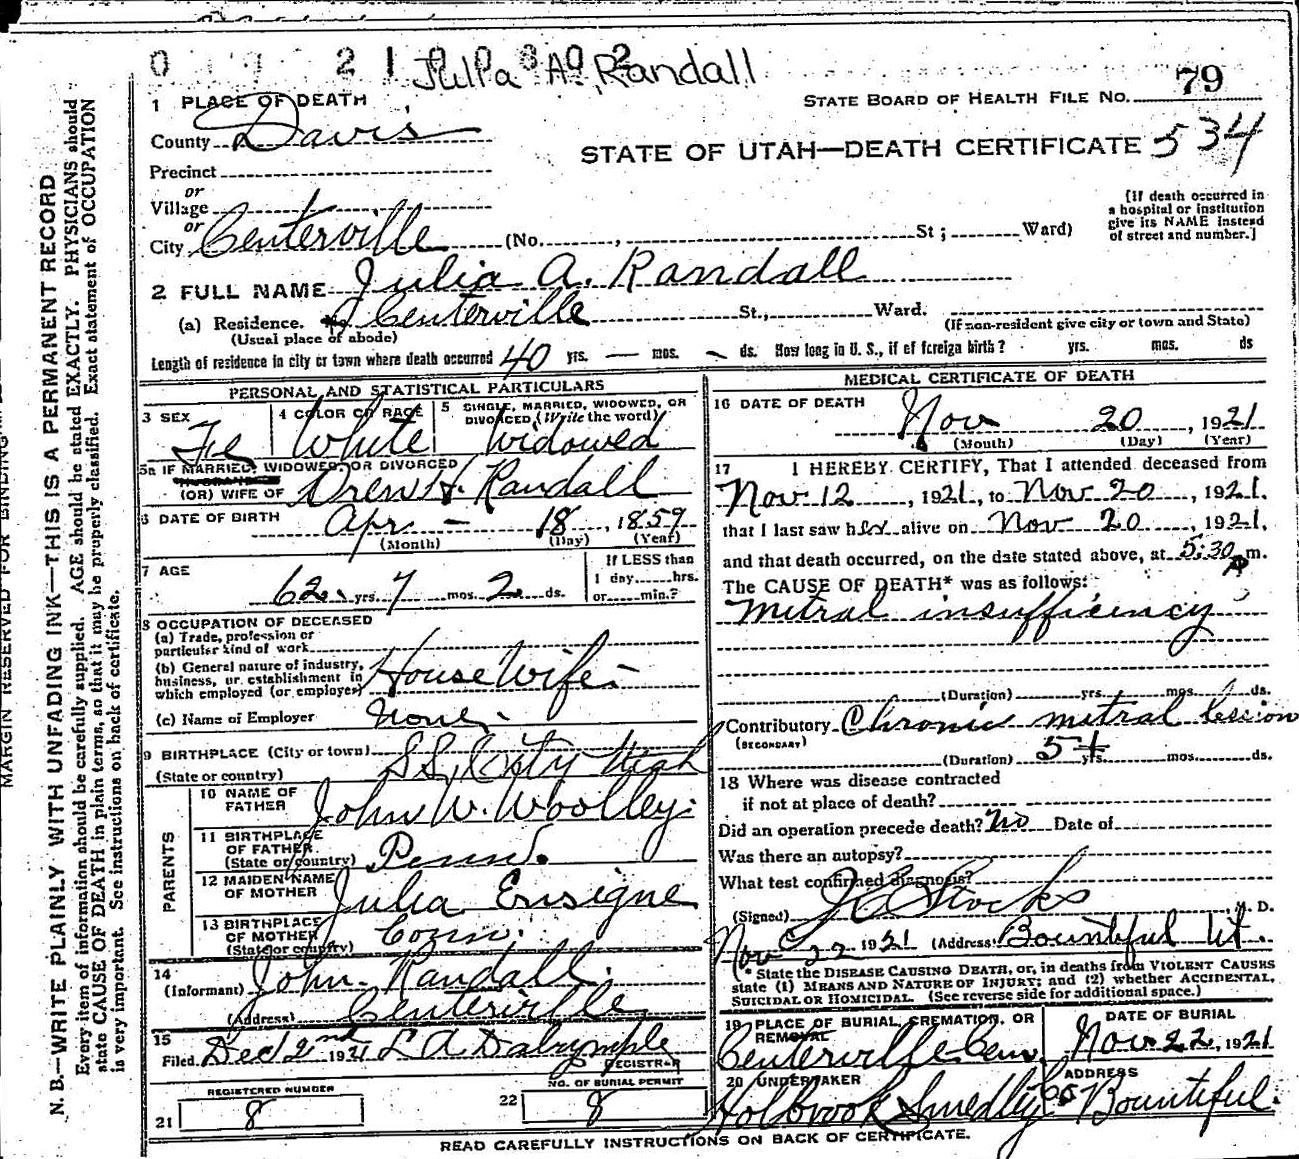 Julia A. Randall
79
STATE BOARD OF HEALTH FILE No.
1 PLACE OF DEATH
County Davis
STATE OF UTAH—DEATH CERTIFICATE 534
Precinct
or
Village
or
City Centerville (No. , St; Ward)
[If death occurred in
a hospital or institution
give its NAME instead
of street and number.]
2 FULL NAME Julia A. Randall
(a) Residence. Centerville St., Ward.
(Usual place of abode) (If non-resident give city or town and State)
Length of residence in city or town where death occurred 40 yrs. — mos. ~ ds. How long in U. S., if of foreign birth? yrs. mos. ds
PERSONAL AND STATISTICAL PARTICULARS
3 SEX Fe
4 COLOR OR RACE White
5 SINGLE, MARRIED, WIDOWED, OR
DIVORCED (Write the word)
Widowed
5a IF MARRIED, WIDOWED, OR DIVORCED
(OR) WIFE OF Oren H. Randall
6 DATE OF BIRTH Apr — 18, 1859
(Month) (Day) (Year)
7 AGE 62 yrs. 7 mos. 2 ds.
If LESS than
1 day hrs.
or min.?
8 OCCUPATION OF DECEASED
(a) Trade, profession or
particular kind of work
(b) General nature of industry,
business, or establishment in
which employed (or employer) House Wife
(c) Name of Employer None
9 BIRTHPLACE (City or town) S L City Utah
(State or country)
PARENTS
10 NAME OF
FATHER John W. Woolley
11 BIRTHPLACE
OF FATHER
(State or country) Penn.
12 MAIDEN NAME
OF MOTHER Julia Ensigne
13 BIRTHPLACE
OF MOTHER
(State or country) Conn.
14
(Informant) John Randall.
(Address) Centerville
15
Filed Dec 2nd 1921 L A Dalrymple
REGISTRAR
REGISTERED NUMBER
21 8
NO. OF BURIAL PERMIT
22 8
MEDICAL CERTIFICATE OF DEATH
16 DATE OF DEATH
Nov 20, 1921
(Month) (Day) (Year)
17 I HEREBY CERTIFY, That I attended deceased from
Nov 12, 1921, to Nov 20, 1921.
that I last saw her alive on Nov 20, 1921.
and that death occurred, on the date stated above, at 5:30 P m.
The CAUSE OF DEATH* was as follows:
Mitral insufficiency
(Duration) yrs. mos. ds.
Contributory Chronic mitral lesion
(SECONDARY)
(Duration) 5+ yrs. mos. ds.
18 Where was disease contracted
if not at place of death?
Did an operation precede death? No Date of
Was there an autopsy?
What test confirmed diagnosis?
(Signed) J C Stocks M. D.
Nov 22 1921 (Address) Bountiful Ut.
* State the DISEASE CAUSING DEATH, or, in deaths from VIOLENT CAUSES
state (1) MEANS AND NATURE OF INJURY; and (2) whether ACCIDENTAL,
SUICIDAL OR HOMICIDAL. (See reverse side for additional space.)
19 PLACE OF BURIAL, CREMATION, OR
REMOVAL
Centerville Cem.
DATE OF BURIAL
Nov 22, 1921
20 UNDERTAKER
Holbrook Smedley Co
ADDRESS
Bountiful.
READ CAREFULLY INSTRUCTIONS ON BACK OF CERTIFICATE.
MARGIN RESERVED FOR BINDING
N. B.—WRITE PLAINLY WITH UNFADING INK—THIS IS A PERMANENT RECORD
Every item of information should be carefully supplied. AGE should be stated EXACTLY. PHYSICIANS should
state CAUSE OF DEATH in plain terms, so that it may be properly classified. Exact statement of OCCUPATION
is very important. See instructions on back of certificate.